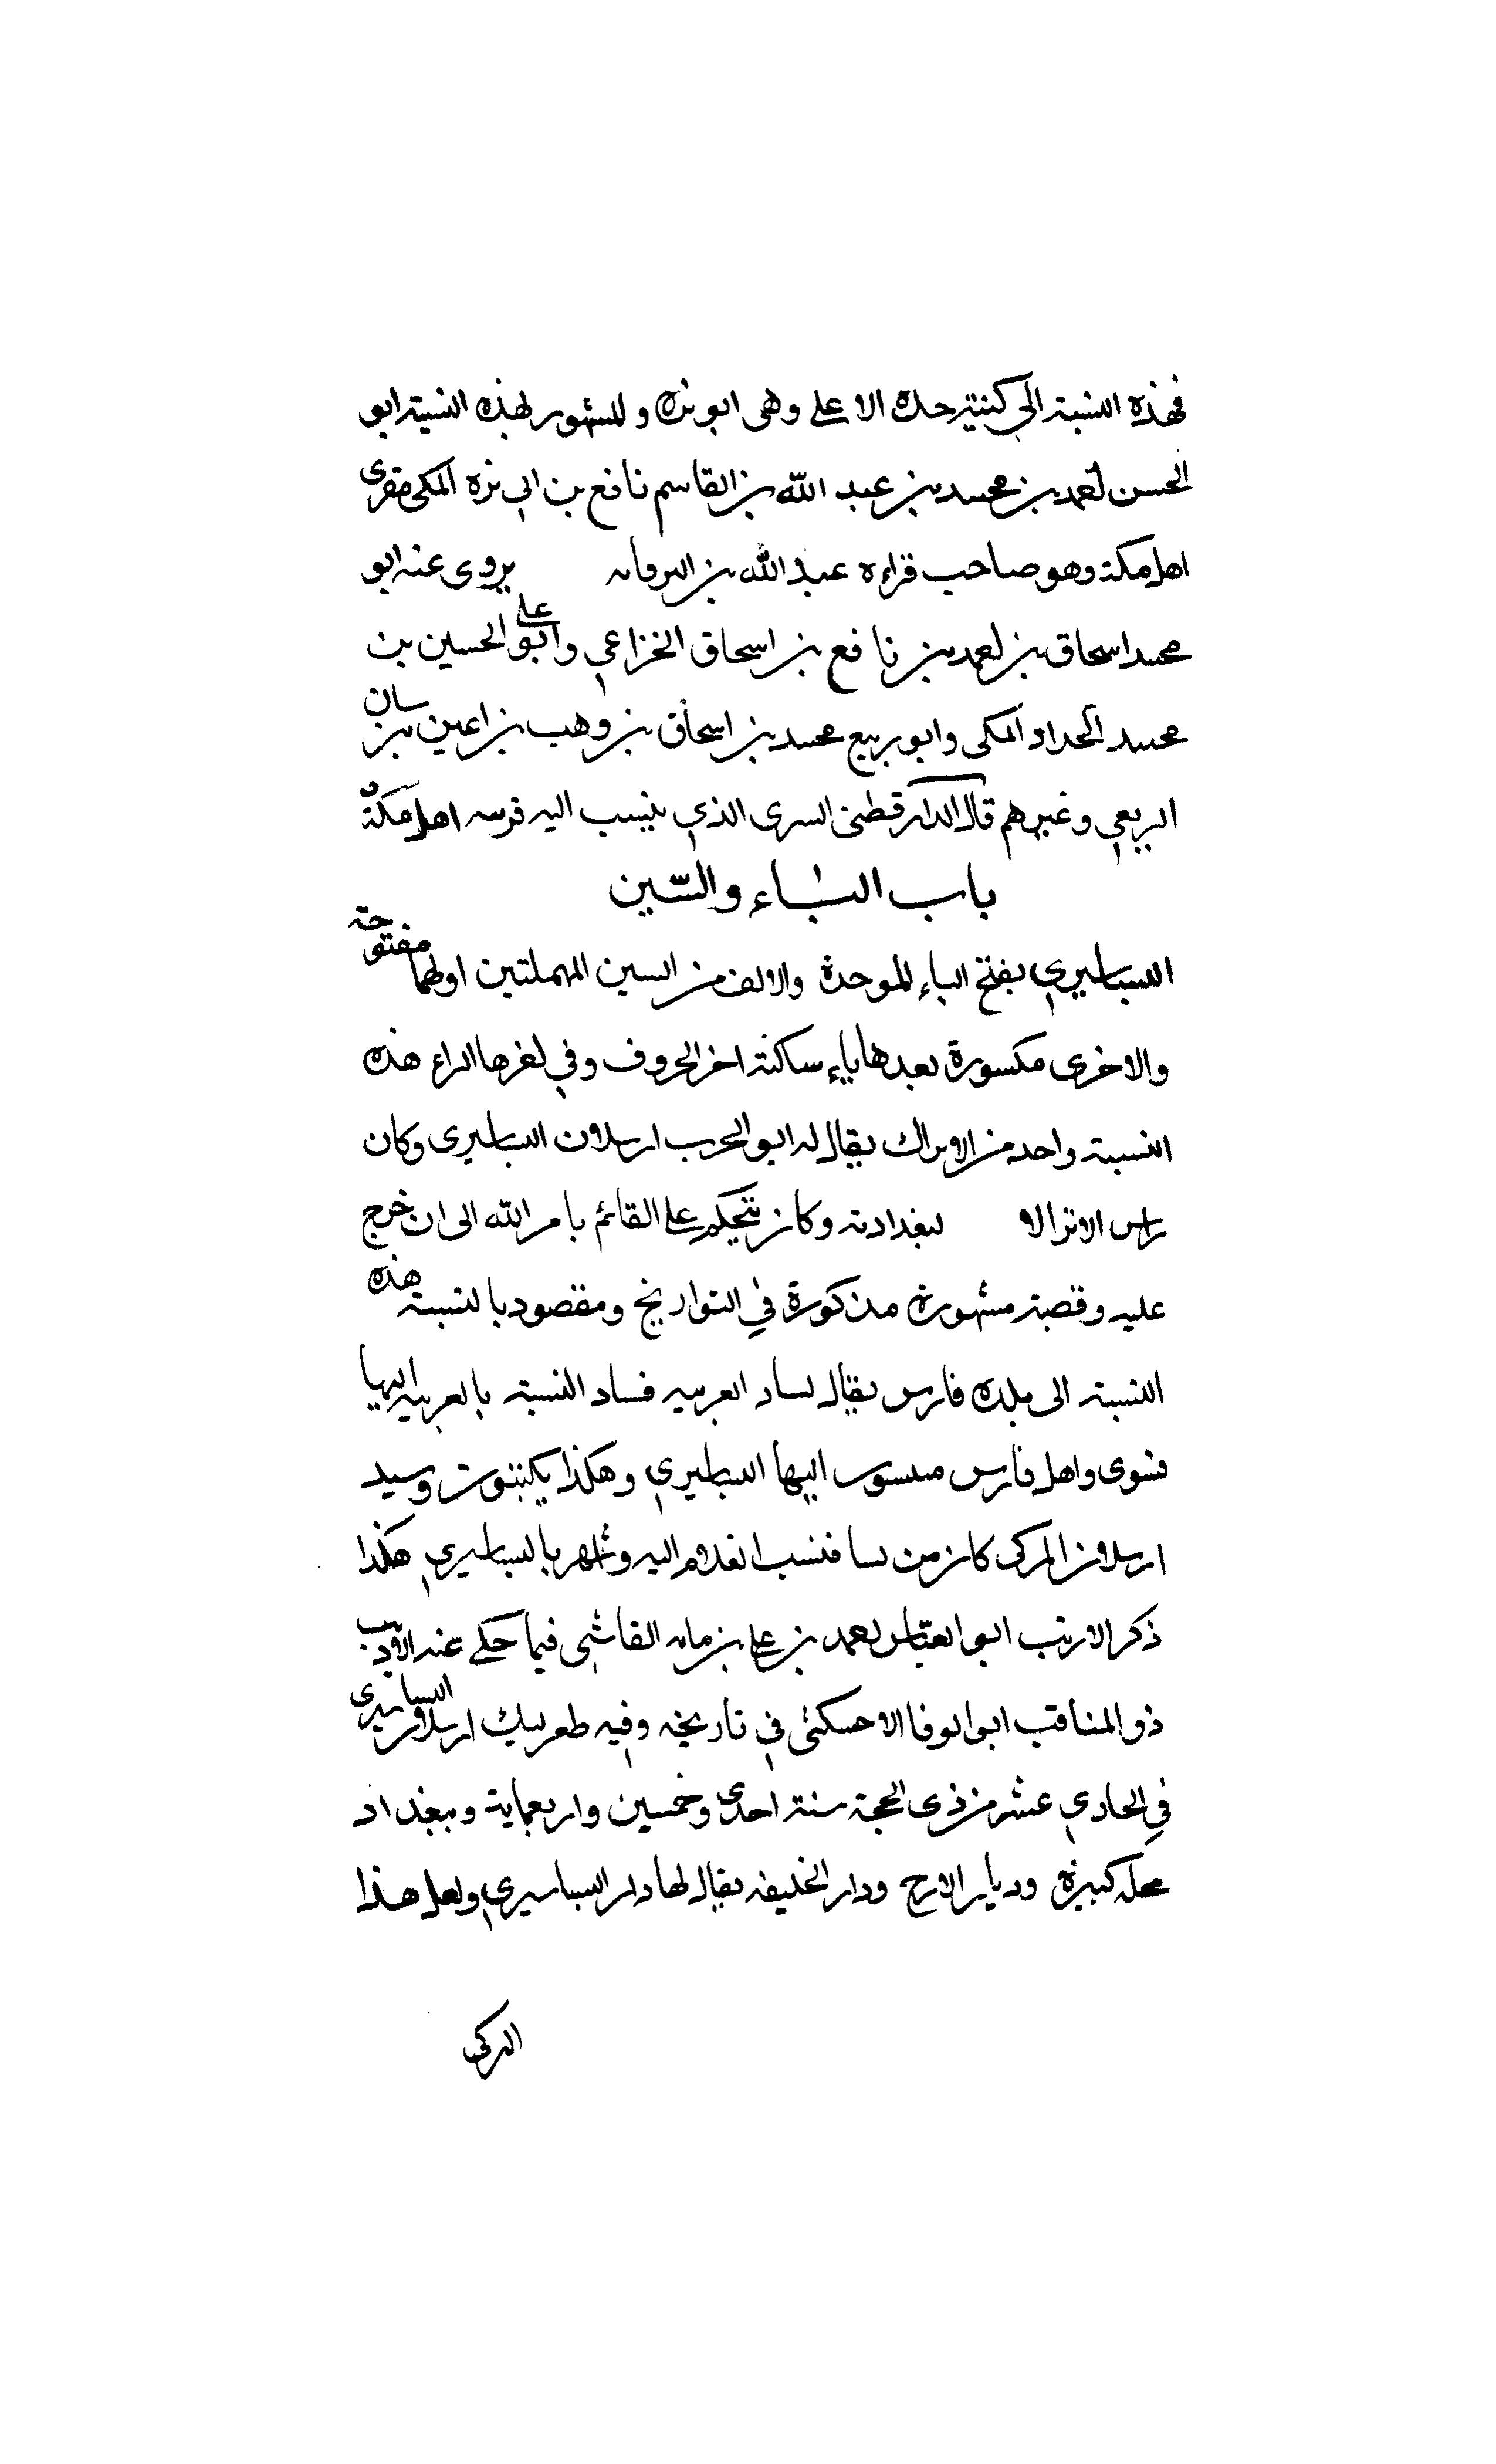 فهذه النسبة الى كنية جده الاعلى وهى ابو بزه والمشهور لهذه النسبة ابو
الحسن احمد بن محمد بن عبد الله بن القاسم نافع بن ابي بزه المكى مقرى
اهل مكة وهو صاحب قراءه عبد الله بن يروى عنه ابو
محمد اسحاق بن احمد بن نافع بن اسحاق الخزاعي وابو على الحسين بن
محمد الحداد المكى وابو ربيع محمد بن اسحاق بن وهب بن اعين بن سان
الربعي وغيرهم قال الدارقطنى البزى الذي ينسب اليه قرىه اهل مكة
باب الباء والسين
البساسيري بفتح الباء الموحدة والالف من السين المهملتين اولهما مفتوحة
والاخرى مكسورة بعدها ياء ساكنة اخر الحروف وفي اخرها الراء هذه
النسبة واحد من الاتراك يقال له ابو الحرب ارسلان البساسيرى وكان
راس الاتراك لبغدادته وكان يتحكم على القائم بامر الله الى ان خرج
عليه وقصبة مشهورة مذكورة في التواريخ ومقصود بالنسبة هذه
النسبة الى بلدة فارس يقال لساد العربيه فساد النسبة بالعربيه اليها
فسوى واهل فارس منسوب اليها البساسيري وهكذا يكتبون وسيد
ارسلان التركى كان من بسا فنسب الغلام اليه وشهر بالبساسيري هكذا
ذكر الاديب ابو العباس احمد بن على بن القاشى فيما حكى عنه الاديب
ذو المناقب ابو الوفا الاخسكثى في تاريخه وفيه ارسلان البساسيرى
في الحادي عشر من ذى الحجة سنة احدى وخمسين واربعماية وببغداد
محله كبيرة وديار الارح ودار الخليفه يقال لها دار البساسيري ولعل هذا
التركى